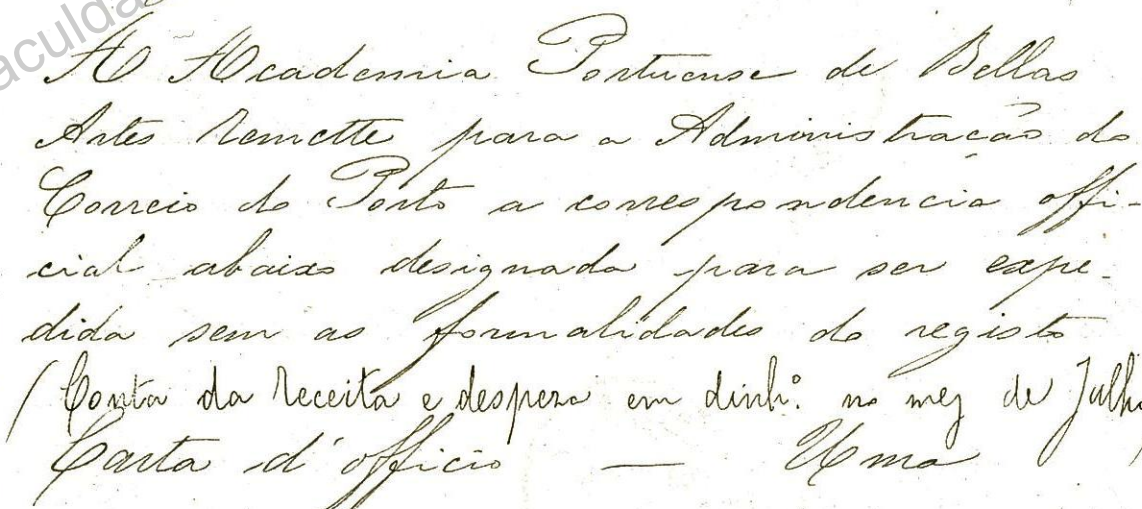 aculda
A Academia Portuense de Bellas
Artes remette para a Administração do
Correio do Porto a correspondencia offi-
cial abaixo designada para ser expe-
dida sem as formalidades do registo
(Conta da receita e despeza em dinhº. no mez de Julho)
Carta d'officio — Uma